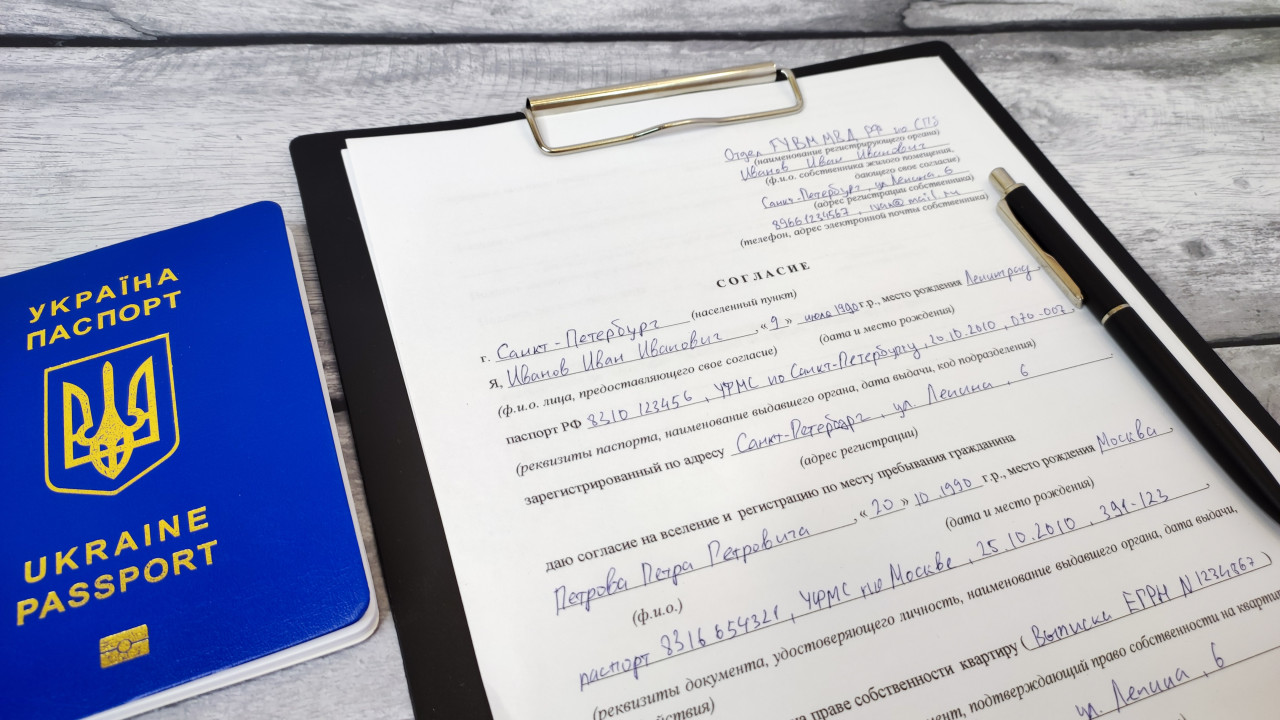 УКРАЇНА
ПАСПОРТ
UKRAINE
PASSPORT
Отдел ГУВМ МВД РФ по СПб
(наименование регистрирующего органа)
Иванов Иван Иванович
(ф.и.о. собственника жилого помещения,
дающего свое согласие)
Санкт-Петербург, ул. Ленина 6
(адрес регистрации собственника)
89661234567, ivan@mail.ru
(телефон, адрес электронной почты собственника)
СОГЛАСИЕ
г. Санкт-Петербург
(населенный пункт)
Я, Иванов Иван Иванович, «9» июля 1990 г.р., место рождения Ленинград,
(ф.и.о. лица, предоставляющего свое согласие) (дата и место рождения)
паспорт РФ 8310 123456, УФМС по Санкт-Петербургу, 20.10.2010, 070-007,
(реквизиты паспорта, наименование выдавшего органа, дата выдачи, код подразделения)
зарегистрированный по адресу Санкт-Петербург, ул. Ленина, 6
(адрес регистрации)
даю согласие на вселение и регистрацию по месту пребывания гражданина
Петрова Петра Петровича, «20» 10 1990 г.р., место рождения Москва,
(ф.и.о.) (дата и место рождения)
паспорт 8316 654321, УФМС по Москве, 25.10.2010, 391-123,
(реквизиты документа, удостоверяющего личность, наименование выдавшего органа, дата выдачи,
действия)
на праве собственности квартиру (Выписка ЕГРН N 1234867)
подтверждающий право собственности на
ул. Ленина, 6